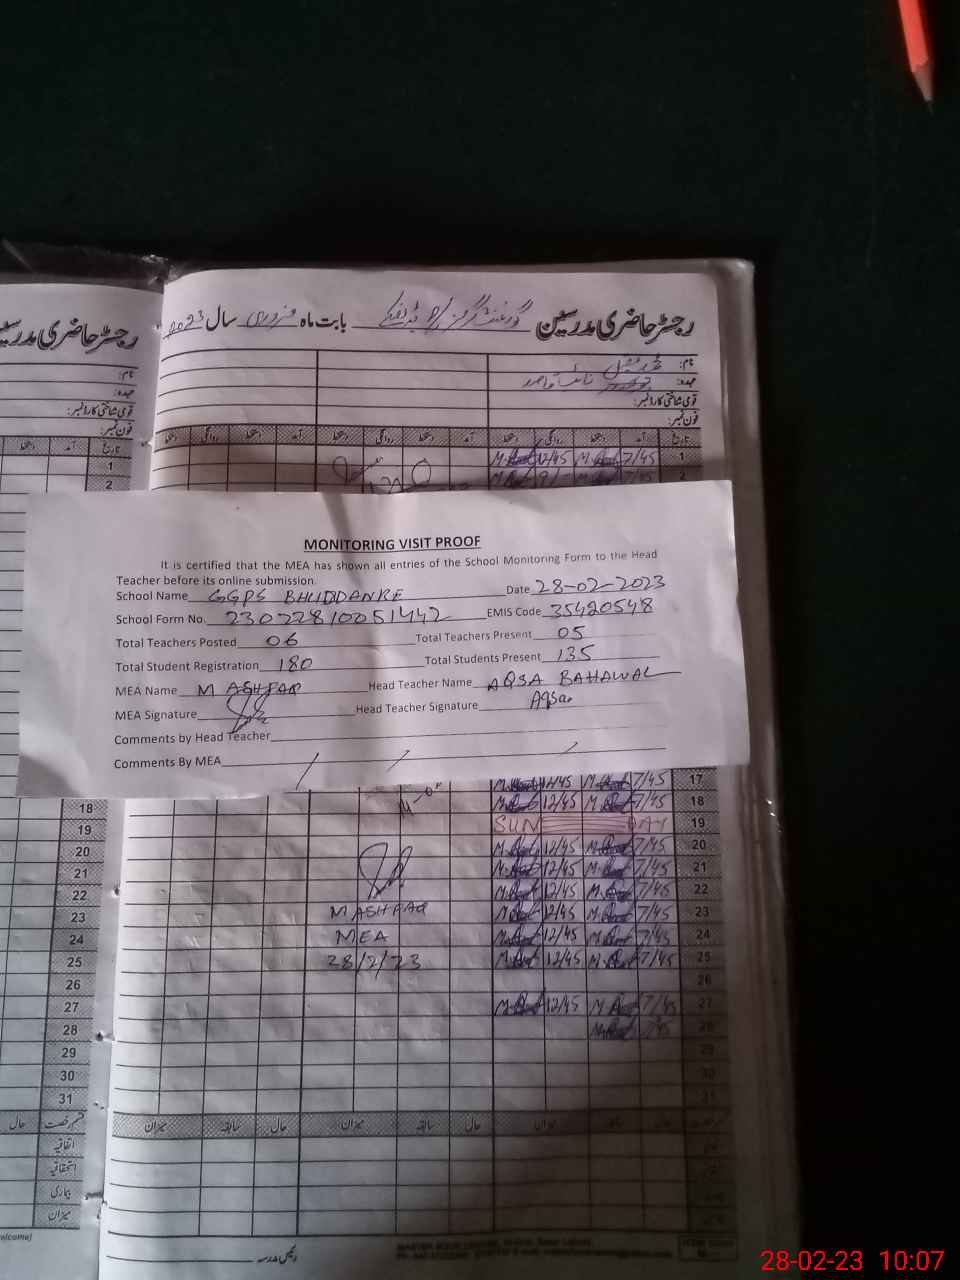 رجسٹر حاضری مدرسین گورنمنٹ گرلز بابت ماہ فروری سال 2023
رجسٹر حاضری مدرسین
نام:
عہدہ:
قومی شناختی کارڈ نمبر:
فون نمبر:
نام:
عہدہ:
قومی شناختی کارڈ نمبر:
فون نمبر:
تاریخ آمد دستخط روانگی دستخط آمد دستخط روانگی دستخط آمد دستخط روانگی دستخط
تاریخ آمد دستخط
1 7/45 12/45
2
1
2
MONITORING VISIT PROOF
It is certified that the MEA has shown all entries of the School Monitoring Form to the Head
Teacher before its online submission.
School Name GGPS BHUDDANKE Date 28-02-2023
School Form No. 23022810051442 EMIS Code 35420548
Total Teachers Posted 06 Total Teachers Present 05
Total Student Registration 180 Total Students Present 135
MEA Name M ASHFAQ Head Teacher Name AQSA BAHAWAL
MEA Signature Head Teacher Signature Aqsa
Comments by Head Teacher
Comments By MEA
12/45 7/45 17
18 12/45 7/45 18
19 SUN DAY 19
20 12/45 7/45 20
21 12/45 7/45 21
22 12/45 7/45 22
23 M ASHFAQ 12/45 7/45 23
24 MEA 12/45 7/45 24
25 28/2/23 12/45 7/45 25
26 26
27 12/45 7/45 27
28 7/45 28
29 29
30 30
31 31
قسم رخصت حال
حال سابقہ میزان حال سابقہ میزان حال سابقہ میزان
اتفاقیہ
استحقاقیہ
بیماری
میزان
رئیس مدرسہ
28-02-23 10:07